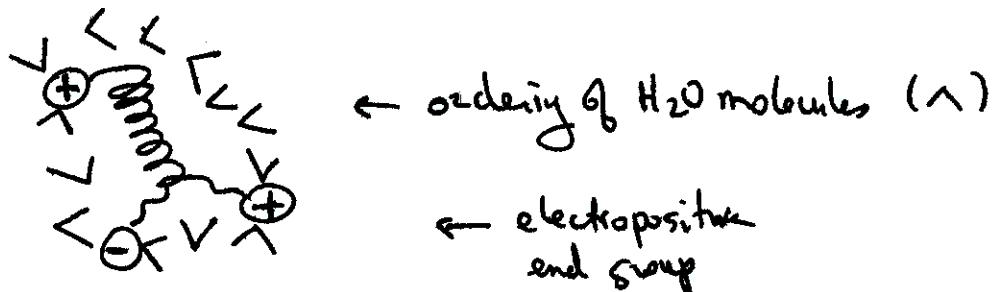 +
← ordering of H₂O molecules (∧)
+
← electropositive
-
end group